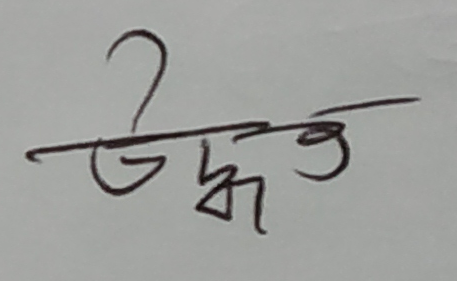 উদ্ধত